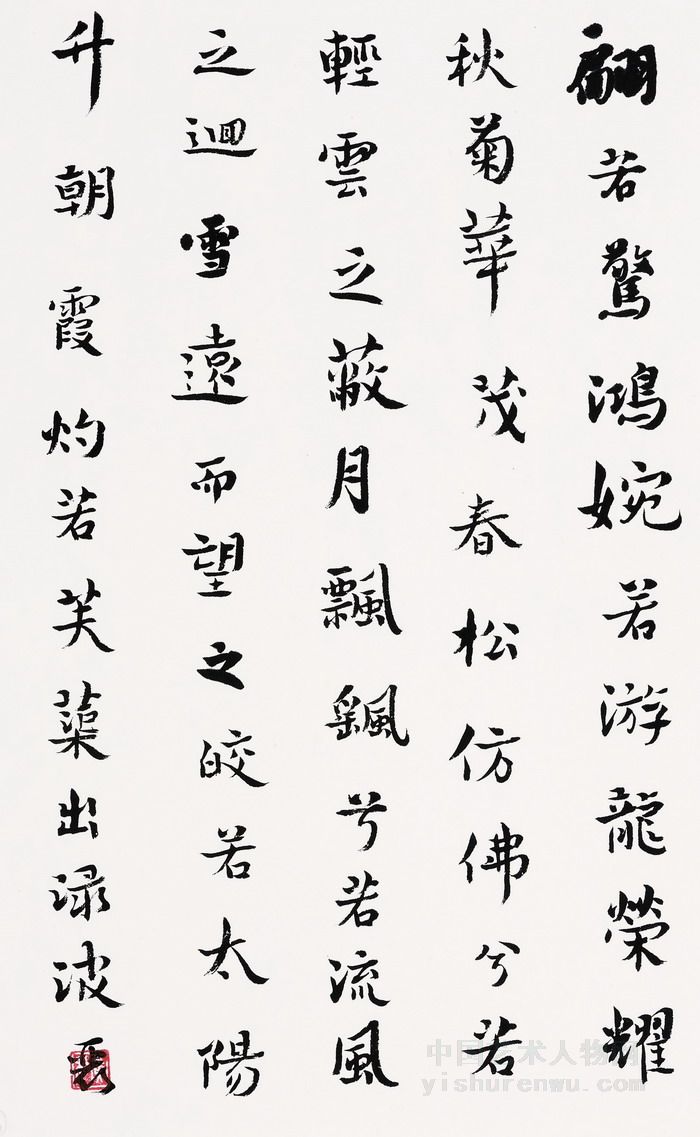 翩若驚鴻婉若游龍榮耀
秋菊華茂春松仿佛兮若
輕雲之蔽月飄飖兮若流風
之迴雪遠而望之皎若太陽
升朝霞灼若芙蕖出渌波
yishurenwu.com